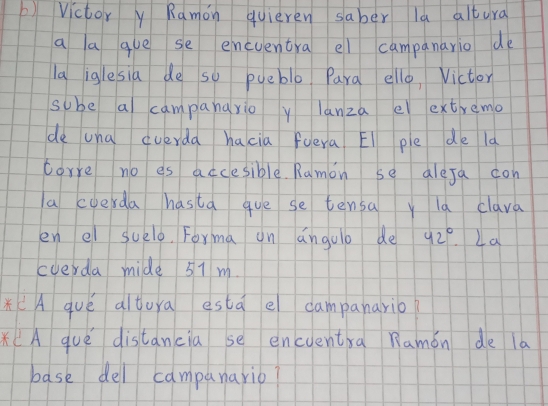 b) Victor y Ramón quieren saber la altura
a la que se encuentra el campanario de
la iglesia de su pueblo. Para ello, Victor
sube al campanario y lanza el extremo
de una cuerda hacia fuera El pie de la
torre no es accesible. Ramón se aleja con
la cuerda hasta que se tensa y la clava
en el suelo. Forma un ángulo de 42º. La
cuerda mide 51 m.
*¿A qué altura está el campanario?
*¿A qué distancia se encuentra Ramón de la
base del campanario?